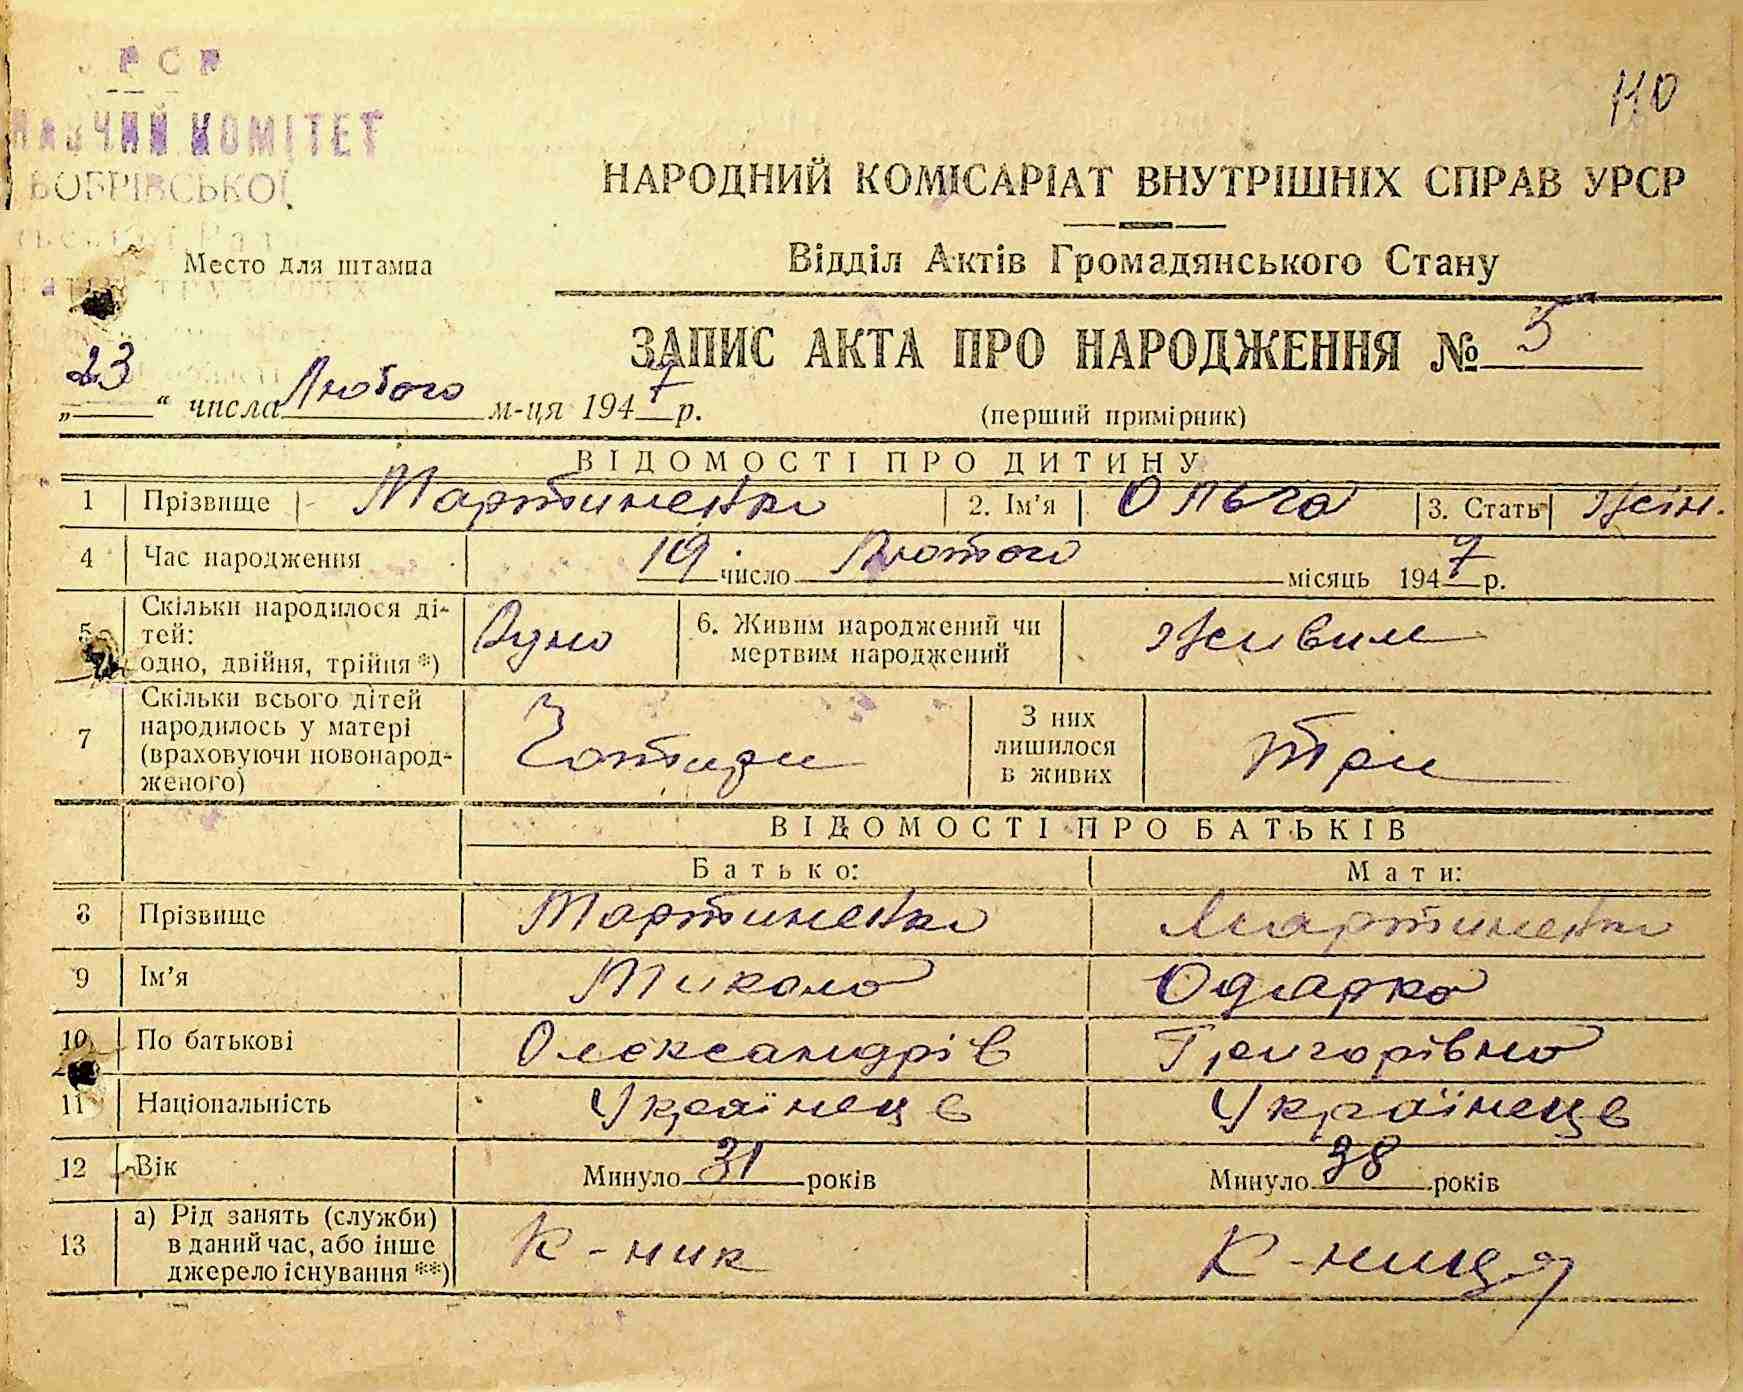 РСР
110
КОМІТЕТ
БОБРІВСЬКОЇ
НАРОДНИЙ КОМІСАРІАТ ВНУТРІШНІХ СПРАВ УРСР
Место для штампа
Відділ Актів Громадянського Стану
ЗАПИС АКТА ПРО НАРОДЖЕННЯ № 5
„23“ числа Лютого м-ця 1947 р.
(перший примірник)
ВІДОМОСТІ ПРО ДИТИНУ
1 Прізвище Мартиненко 2. Ім’я Ольга 3. Стать жін.
4 Час народження 19 число Лютого місяць 1947 р.
5 Скільки народилося ді-
тей:
одно, двійня, трійня *) Одно 6. Живим народжений чи
мертвим народжений живим
7 Скільки всього дітей
народилось у матері
(враховуючи новонарод-
женого) Чотири З них
лишилося
в живих Три
ВІДОМОСТІ ПРО БАТЬКІВ
Батько: Мати:
8 Прізвище Мартиненко Мартиненко
9 Ім’я Микола Одарка
10 По батькові Олександрів Григорівна
11 Національність Українець Українець
12 Вік Минуло 31 років Минуло 38 років
13 а) Рід занять (служби)
в даний час, або інше
джерело існування **) К-ник К-ниця